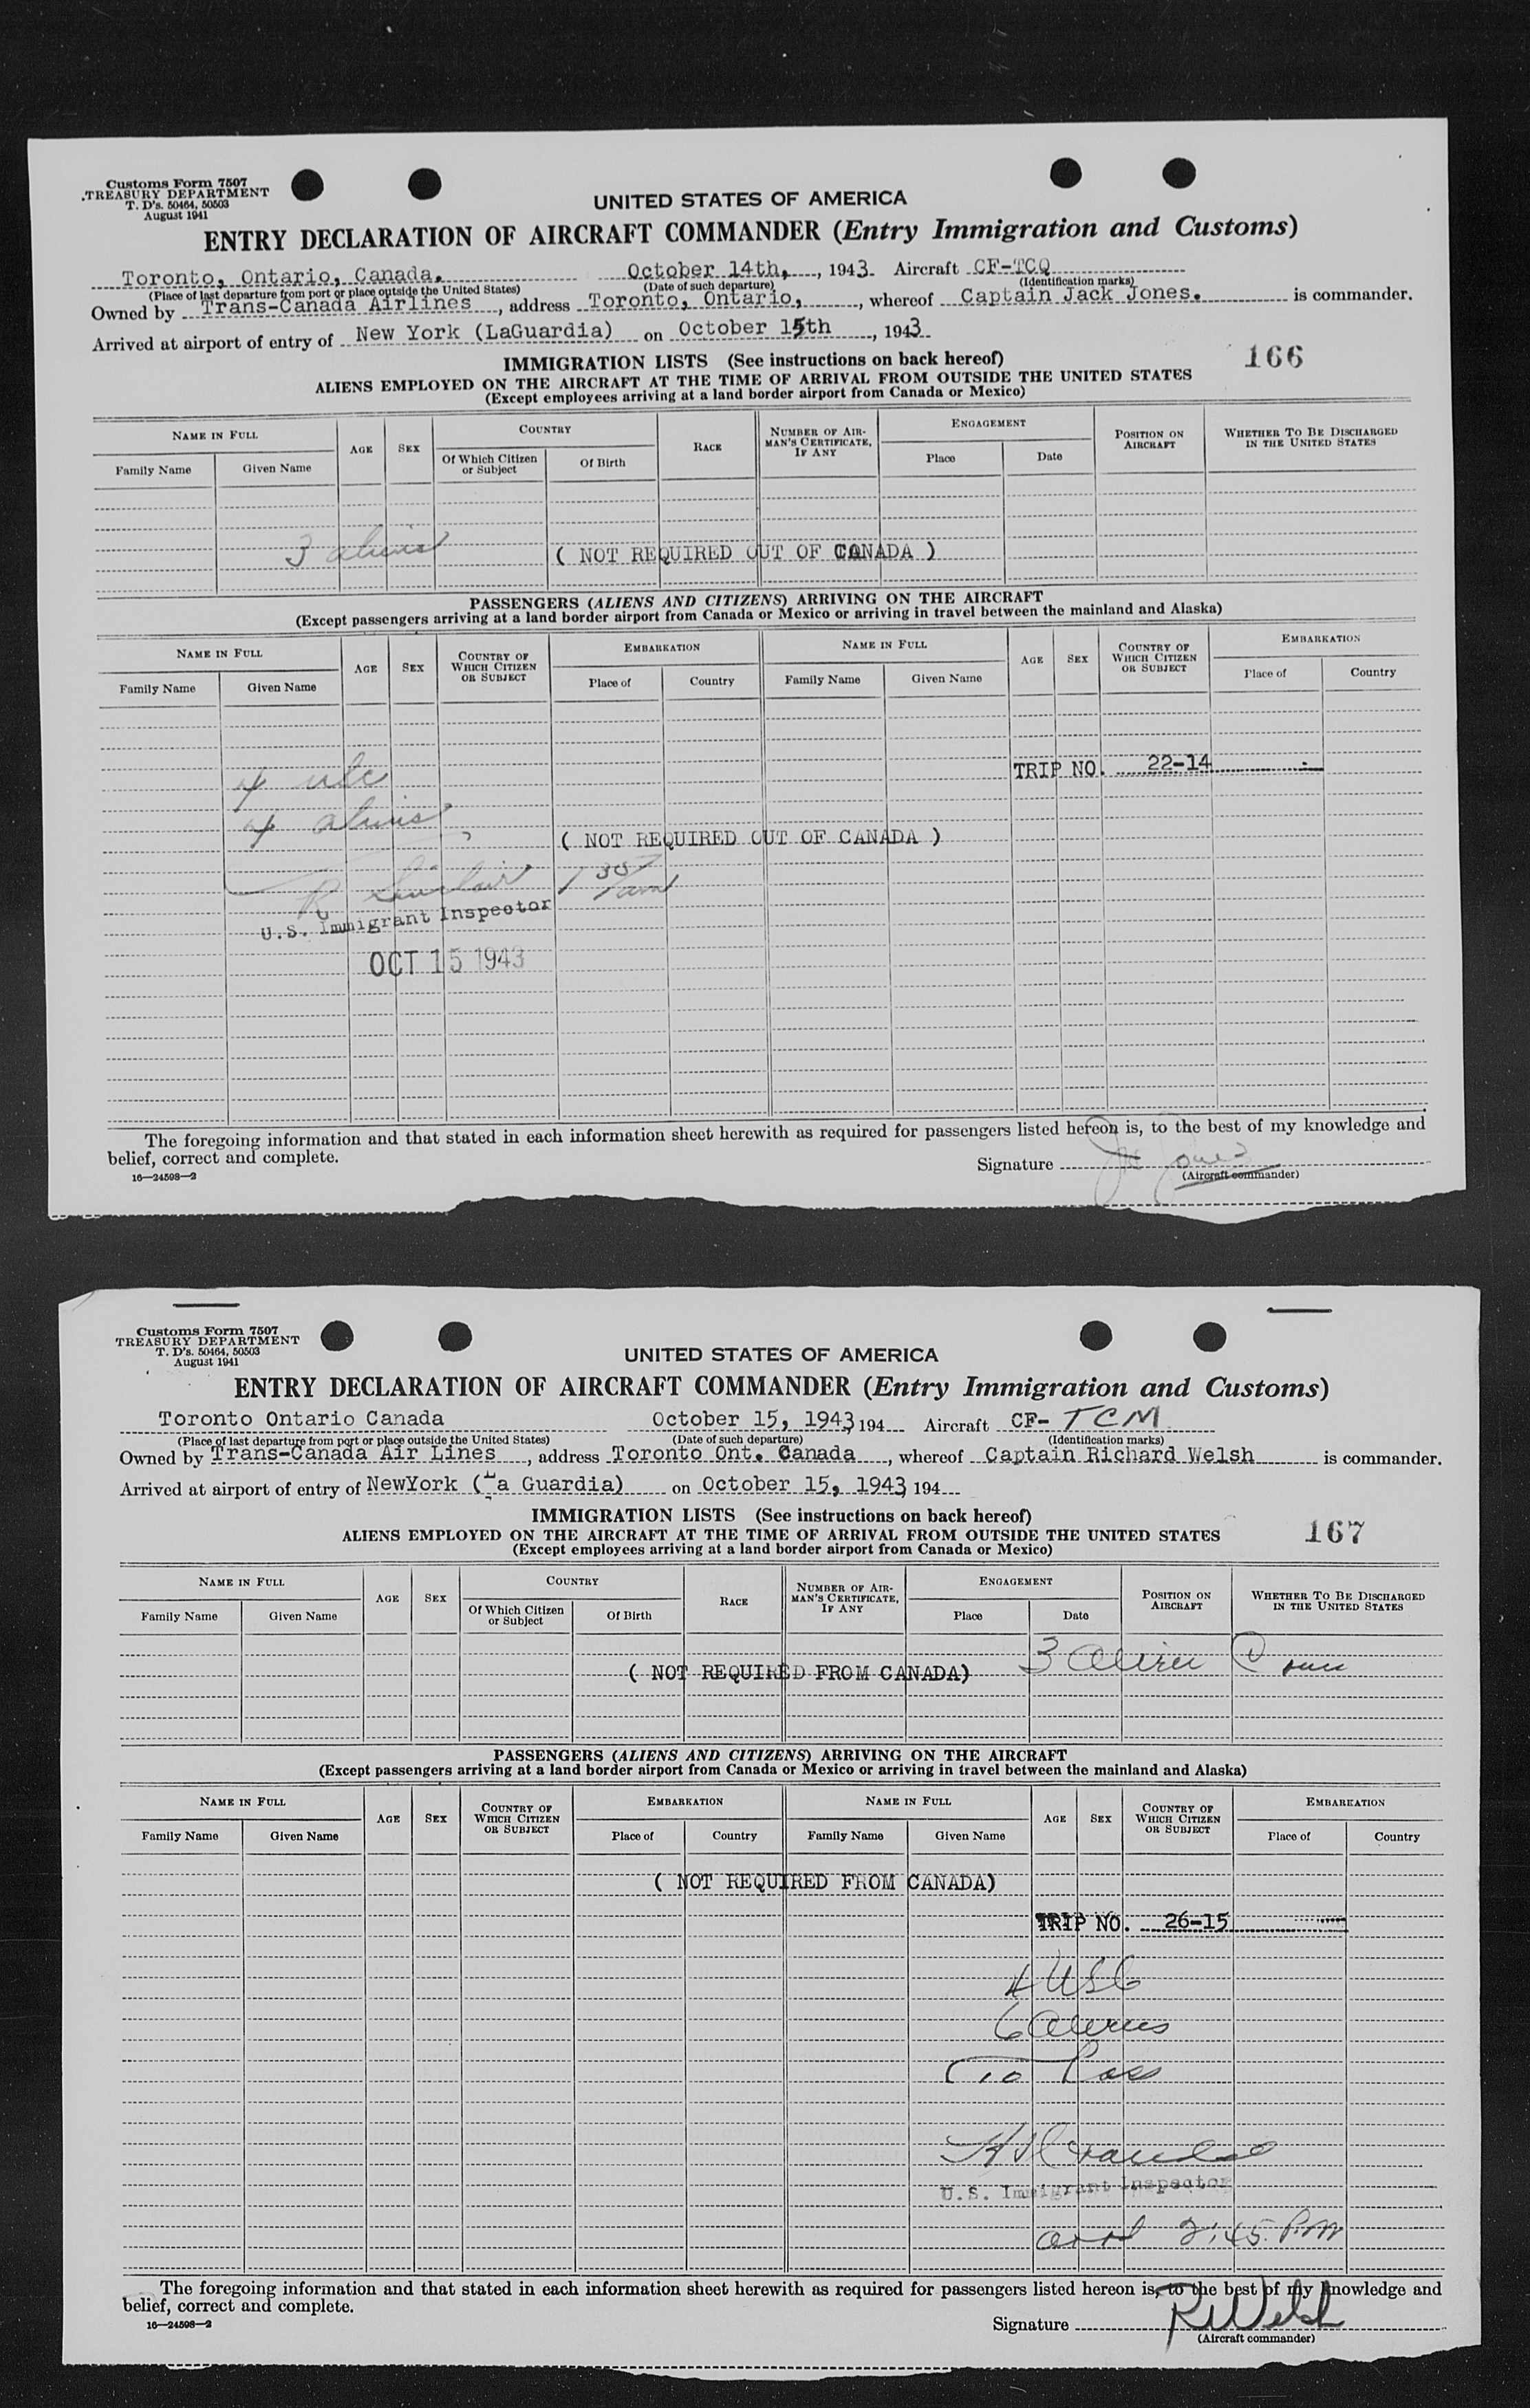 Customs Form 7507
TREASURY DEPARTMENT
T. D's. 50464, 50503
August 1941
UNITED STATES OF AMERICA
ENTRY DECLARATION OF AIRCRAFT COMMANDER (Entry Immigration and Customs)
Toronto, Ontario, Canada. October 14th, , 1943 Aircraft CF-TCQ
(Place of last departure from port or place outside the United States) (Date of such departure) (Identification marks)
Owned by Trans-Canada Airlines , address Toronto, Ontario, , whereof Captain Jack Jones. is commander.
Arrived at airport of entry of New York (LaGuardia) on October 15th , 1943
IMMIGRATION LISTS (See instructions on back hereof) 166
ALIENS EMPLOYED ON THE AIRCRAFT AT THE TIME OF ARRIVAL FROM OUTSIDE THE UNITED STATES
(Except employees arriving at a land border airport from Canada or Mexico)
NAME IN FULL AGE SEX COUNTRY RACE NUMBER OF AIR-MAN'S CERTIFICATE, IF ANY ENGAGEMENT POSITION ON AIRCRAFT WHETHER TO BE DISCHARGED IN THE UNITED STATES
Family Name Given Name Of Which Citizen or Subject Of Birth Place Date
3 aliens ( NOT REQUIRED OUT OF CANADA )
PASSENGERS (ALIENS AND CITIZENS) ARRIVING ON THE AIRCRAFT
(Except passengers arriving at a land border airport from Canada or Mexico or arriving in travel between the mainland and Alaska)
NAME IN FULL AGE SEX COUNTRY OF WHICH CITIZEN OR SUBJECT EMBARKATION NAME IN FULL AGE SEX COUNTRY OF WHICH CITIZEN OR SUBJECT EMBARKATION
Family Name Given Name Place of Country Family Name Given Name Place of Country
TRIP NO. 22-14
4 usc
4 aliens
( NOT REQUIRED OUT OF CANADA )
R Sinclair 1 35 am
U.S. Immigrant Inspector
OCT 15 1943
The foregoing information and that stated in each information sheet herewith as required for passengers listed hereon is, to the best of my knowledge and
belief, correct and complete.
Signature Jones
16—24598—2 (Aircraft commander)
Customs Form 7507
TREASURY DEPARTMENT
T. D's. 50464, 50503
August 1941
UNITED STATES OF AMERICA
ENTRY DECLARATION OF AIRCRAFT COMMANDER (Entry Immigration and Customs)
Toronto Ontario Canada October 15, 1943, 194 Aircraft CF- TCM
(Place of last departure from port or place outside the United States) (Date of such departure) (Identification marks)
Owned by Trans-Canada Air Lines , address Toronto Ont. Canada , whereof Captain Richard Welsh is commander.
Arrived at airport of entry of NewYork (La Guardia) on October 15, 1943, 194
IMMIGRATION LISTS (See instructions on back hereof) 167
ALIENS EMPLOYED ON THE AIRCRAFT AT THE TIME OF ARRIVAL FROM OUTSIDE THE UNITED STATES
(Except employees arriving at a land border airport from Canada or Mexico)
NAME IN FULL AGE SEX COUNTRY RACE NUMBER OF AIR-MAN'S CERTIFICATE, IF ANY ENGAGEMENT POSITION ON AIRCRAFT WHETHER TO BE DISCHARGED IN THE UNITED STATES
Family Name Given Name Of Which Citizen or Subject Of Birth Place Date
3 Alien
( NOT REQUIRED FROM CANADA)
PASSENGERS (ALIENS AND CITIZENS) ARRIVING ON THE AIRCRAFT
(Except passengers arriving at a land border airport from Canada or Mexico or arriving in travel between the mainland and Alaska)
NAME IN FULL AGE SEX COUNTRY OF WHICH CITIZEN OR SUBJECT EMBARKATION NAME IN FULL AGE SEX COUNTRY OF WHICH CITIZEN OR SUBJECT EMBARKATION
Family Name Given Name Place of Country Family Name Given Name Place of Country
( NOT REQUIRED FROM CANADA)
TRIP NO. 26-15
4 USC
6 Aliens
10 Pass
U.S. Immigrant Inspector
arrd 2:45 P.M
The foregoing information and that stated in each information sheet herewith as required for passengers listed hereon is, to the best of my knowledge and
belief, correct and complete.
Signature R Welsh
16—24598—2 (Aircraft commander)